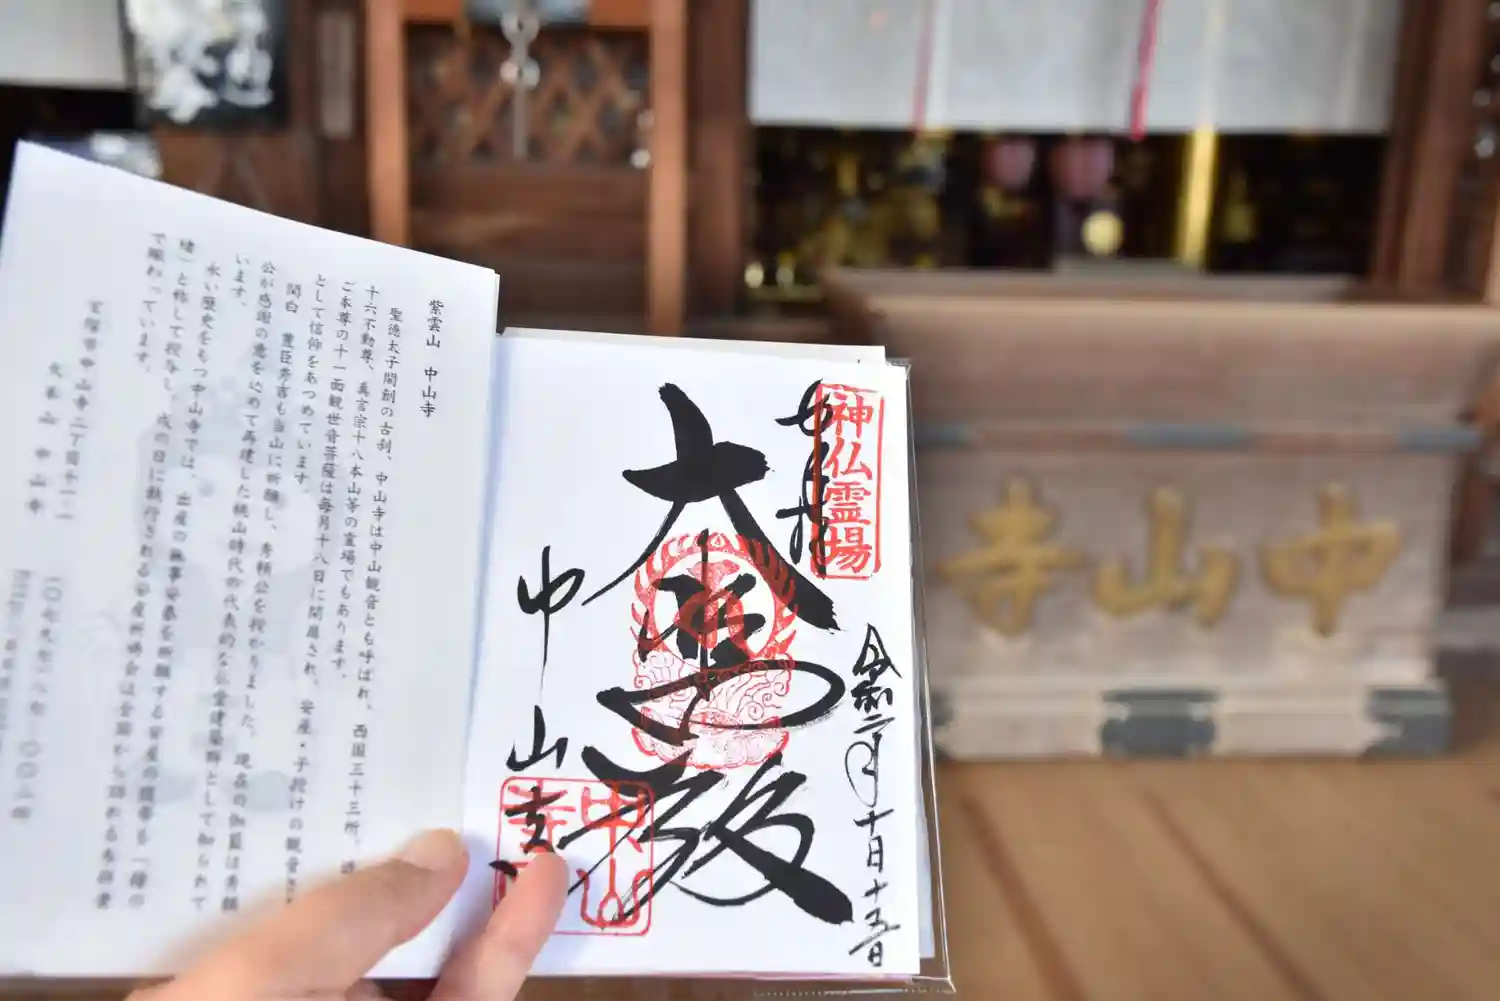 紫雲山 中山寺
聖徳太子開創の古刹、中山寺は中山観音とも呼ばれ、西国三十三所、
十六不動尊、真言宗十八本山等の霊場でもあります。
ご本尊の十一面観世音菩薩は毎月十八日に開扉され、安産・子授けの観音
として信仰をあつめています。
関白 豊臣秀吉も当山に祈願し、秀頼公を授かりました。現在の伽藍は秀頼
公が感謝の意を込めて再建した桃山時代の代表的な仏堂建築群として知られて
います。
永い歴史をもつ中山寺では、出産の無事安泰を祈願する安産の腹帯を「鐘の
緒」と称して授与し、戌の日に執行される安産祈祷会は全国から訪れる参拝者
で賑わっています。
宝塚市中山寺二丁目十一
大本山 中山寺
神仏霊場
奉拝
大悲殿
中山寺
中山寺
令和二年十月十五日
中山寺